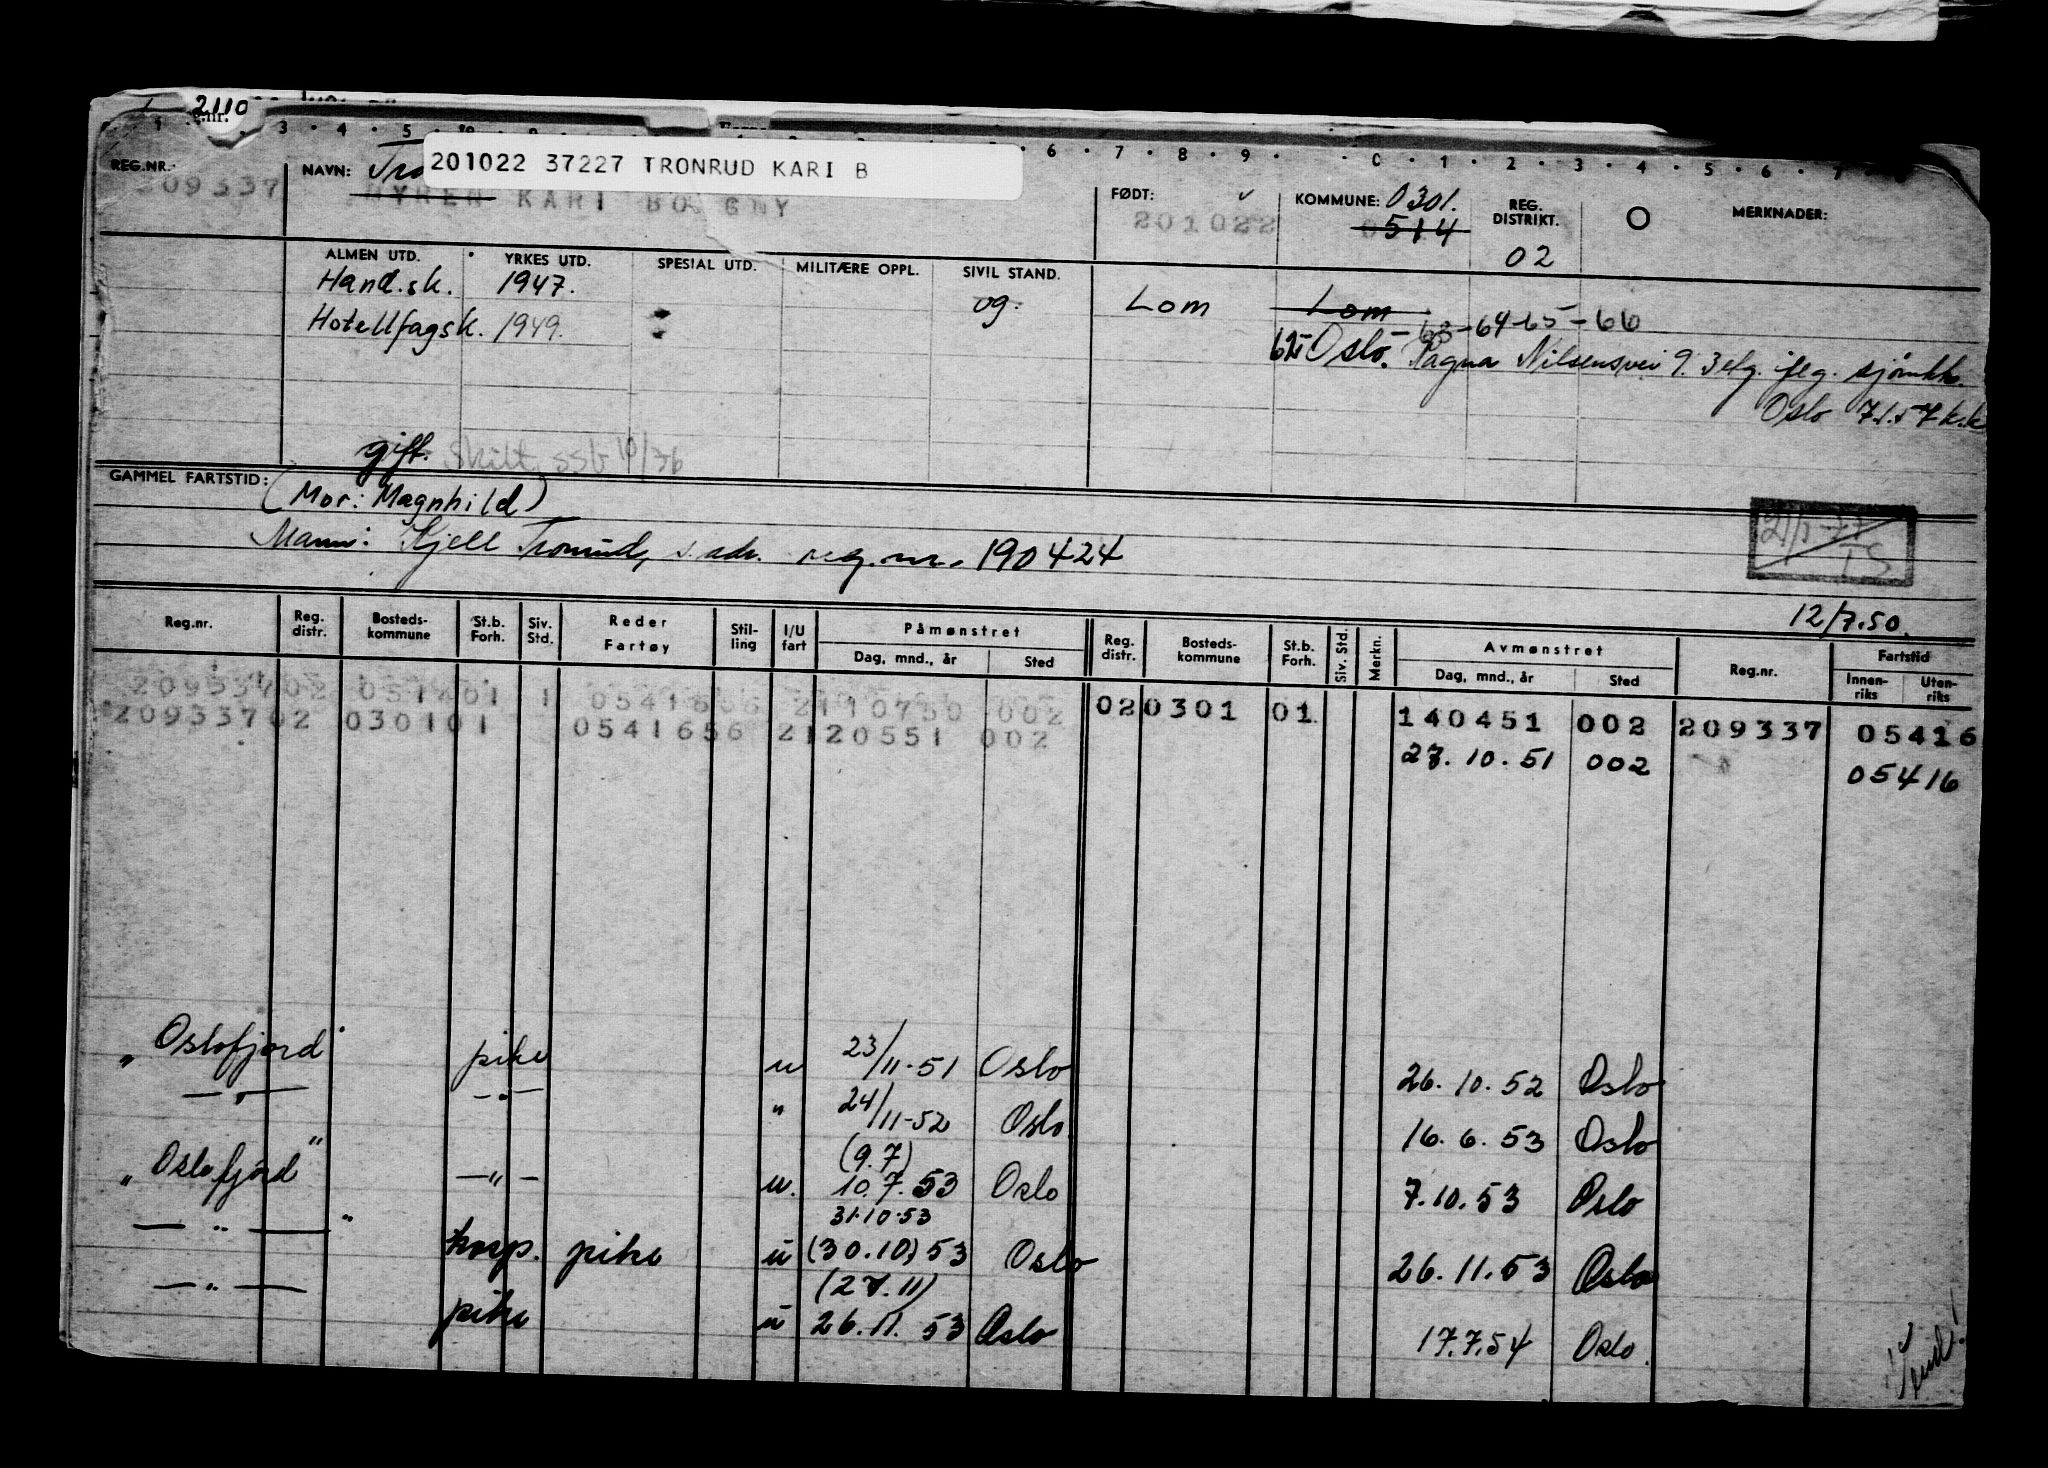 2110
nr.
1 · 3 · 4 · 5 · 6 · 7 · 8 · 9 · 0 · 1 · 2 · 3 · 4 · 5 · 6 · 7
201022 37227 TRONRUD KARI B
REG.NR. NAVN: Tro FØDT: KOMMUNE: 0301. REG. DISTRIKT. O MERKNADER:
209337 MYREN KARI BO GNY 201022 0514 02
ALMEN UTD. YRKES UTD. SPESIAL UTD. MILITÆRE OPPL. SIVIL STAND.
Hand.sk. 1947. ug. Lom Lom
Hotellfagsk. 1949. 63-64-65-66
62 Oslo. Ragna Nilsensvei 9. 3 etg. iflg. sjømkk.
Oslo 7.1.57 k.k
gift. Skilt. SSB 10/76
GAMMEL FARTSTID: (Mor: Magnhild)
Mann: Kjell Tronrud, s. adr. reg.nr. 190424
TS
12/7.50.
Reg.nr. Reg. distr. Bosteds-kommune St.b. Forh. Siv. Std. Reder Fartøy Stil-ling I/U fart Påmønstret Dag, mnd., år Sted Reg. distr. Bosteds-kommune St.b. Forh. Siv. Std. Merkn. Avmønstret Dag, mnd., år Sted Reg.nr. Fartstid Innen-riks Uten-riks
209337 02 0514 01 1 0541656 2110750 002 02 0301 01 140451 002 209337 05416
209337 02 0301 01 0541656 2120551 002 27. 10. 51 002 05416
"Oslofjord" pike u 23/11-51 Oslo 26. 10. 52 Oslo
— " — — " — " 24/11-52 Oslo 16. 6. 53 Oslo
(9.7)
"Oslofjord" — " — u. 10.7.53 Oslo 7.10.53 Oslo
31.10.53
— " — " korp. pike u (30.10) 53 Oslo 26.11.53 Oslo
(27.11)
— " — pike u 26.11.53 Oslo 17.7.54 Oslo.